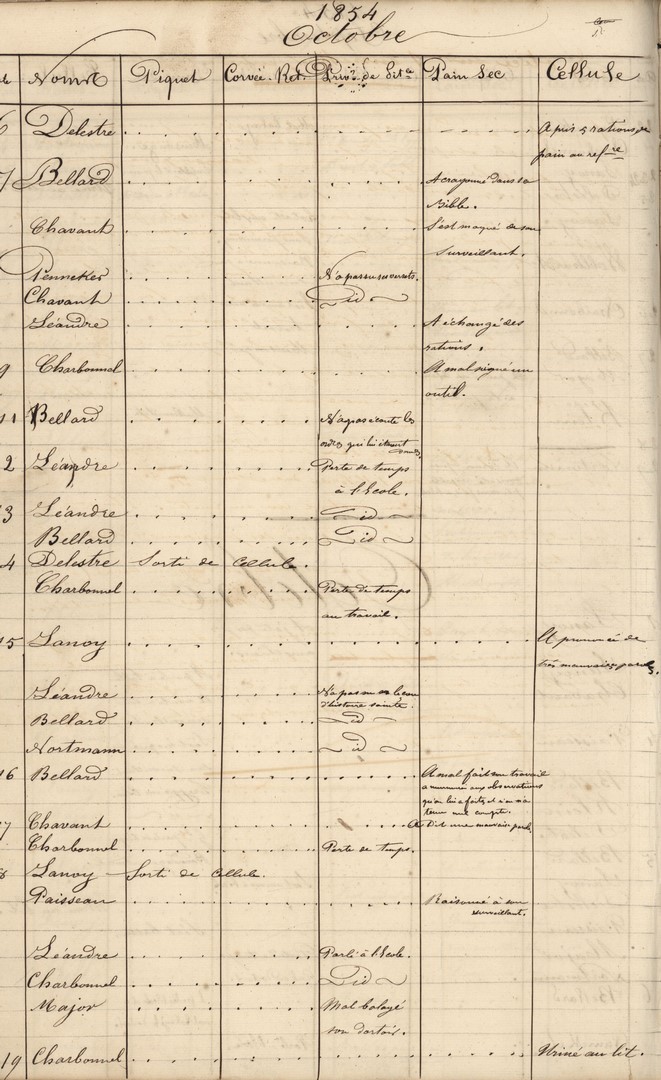 1854
Octobre
Noms Piquet Corvée. Ret. Priv. de Sité Pain Sec Cellule
6 Delestre A pris 5 rations de
pain au refre
7 Bellard A crayonné dans sa
Bible.
Chavant S'est moqué de son
surveillant.
Penneker N'a pas su ses versets.
Chavant Id
Léandre A échangé des
rations.
9 Charbonnel A mal soigné un
outil.
11 Bellard N'a pas écouté les
ordres qui lui étaient
donnés.
2 Léandre Perte de temps
à l'Ecole.
3 Léandre Id
Bellard Id
4 Delestre Sorti de Cellule.
Charbonnel Perte de temps
au travail.
15 Lanoy A prononcé de
très mauvaises parols.
Léandre N'a pas su sa leçon
d'histoire sainte.
Bellard Id
Nortmann Id
16 Bellard A mal fait son travail
a murmuré aux observations
qu'on lui a faites et n'en a
tenu nul compte.
7 Chavant A Dit une mauvaise parole.
Charbonnel Perte de temps.
8 Lanoy Sorti de Cellule.
Paisseau Raisonné à son
surveillant.
Léandre Parlé à l'Ecole.
Charbonnel Id
Major Mal balayé
son dortoir.
19 Charbonnel Uriné au lit.